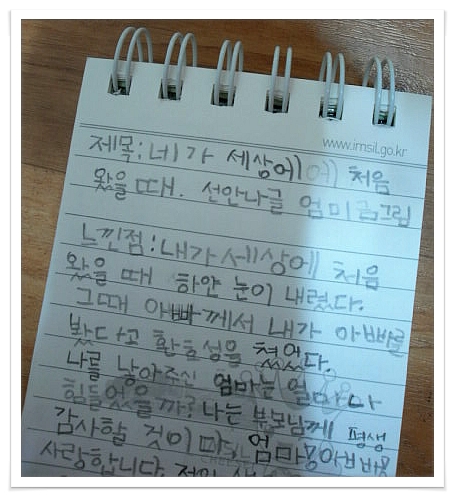 www.imsil.go.kr
제목:네가 세상에 처음
왔을 때. 선안나글 엄미금그림
느낀점:내가 세상에 처음
왔을 때 하얀 눈이 내렸다.
그때 아빠께서 내가 아빠를
봤다고 환호성을 쳤었다.
나를 낳아주신 엄마는 얼마나
힘들었을까? 나는 부모님께 평생
감사할 것이다. 엄마
사랑합니다.